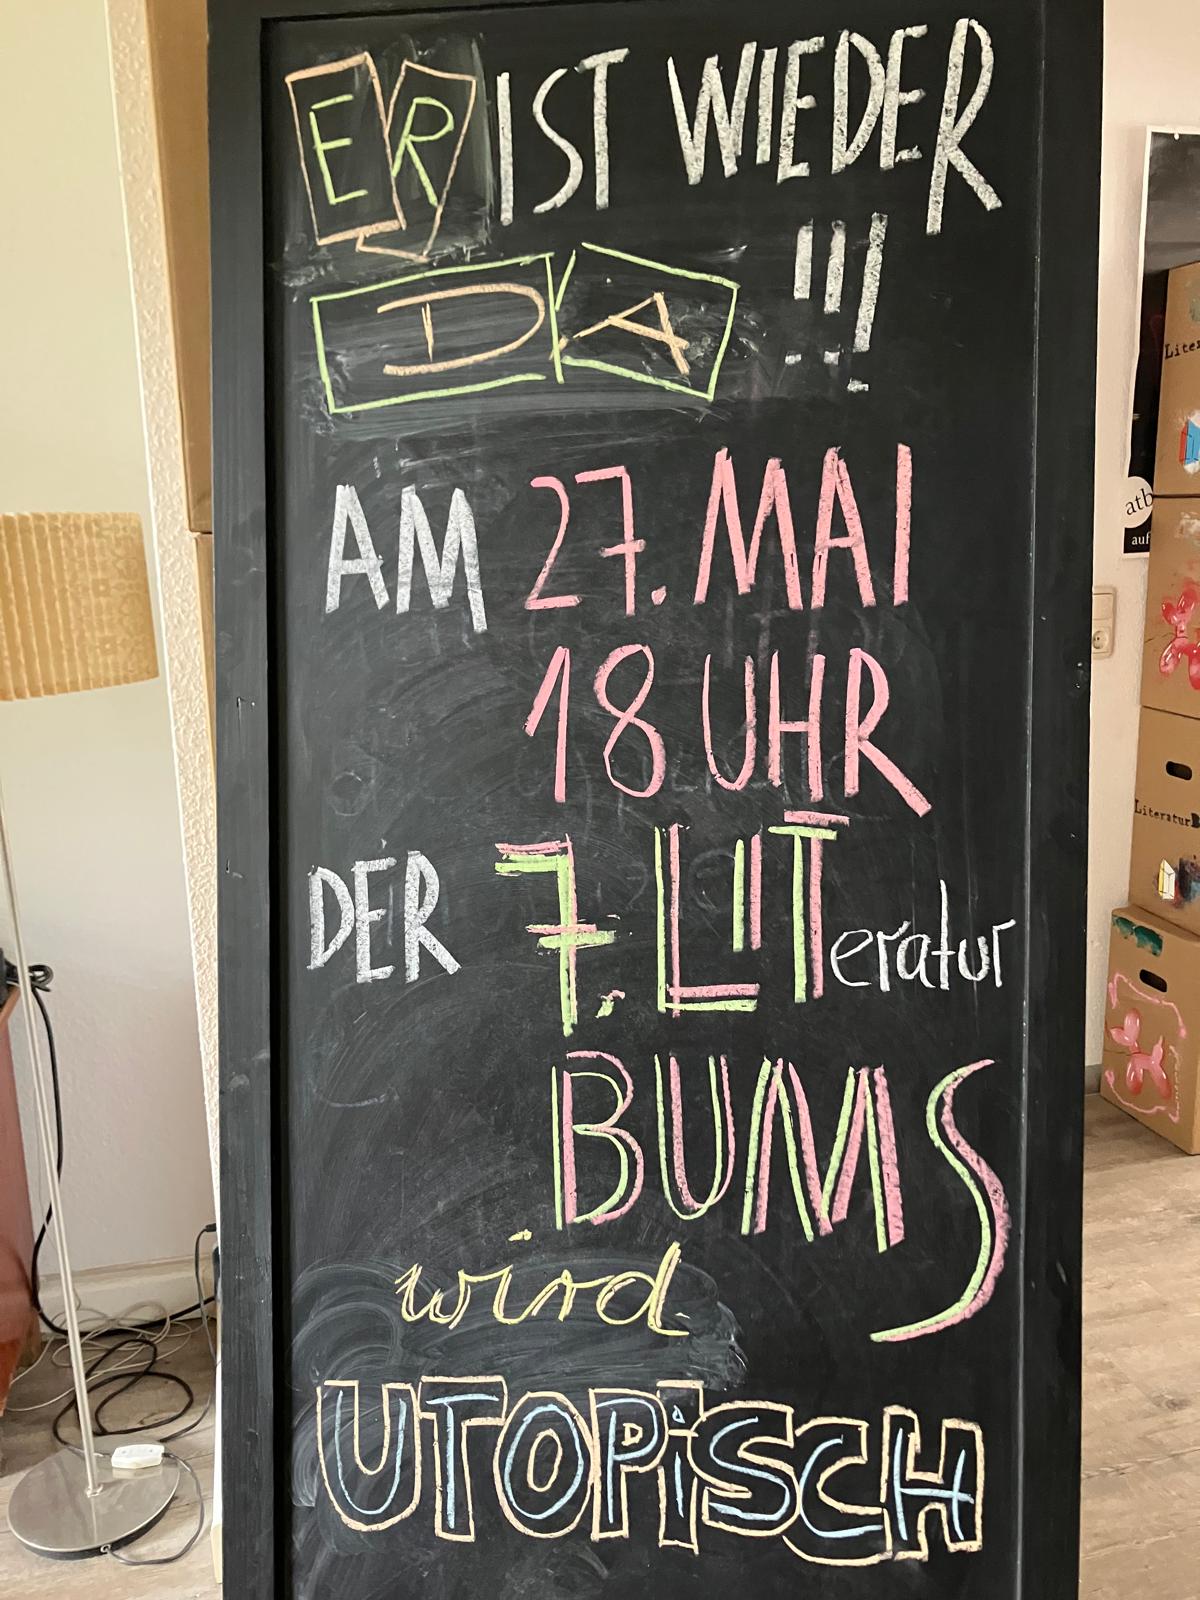 ER IST WIEDER
DA !!!
AM 27. MAI
18 UHR
DER 7. LITeratur
BUMS
wird
UTOPiSCH
atb
auf
LiteraturB